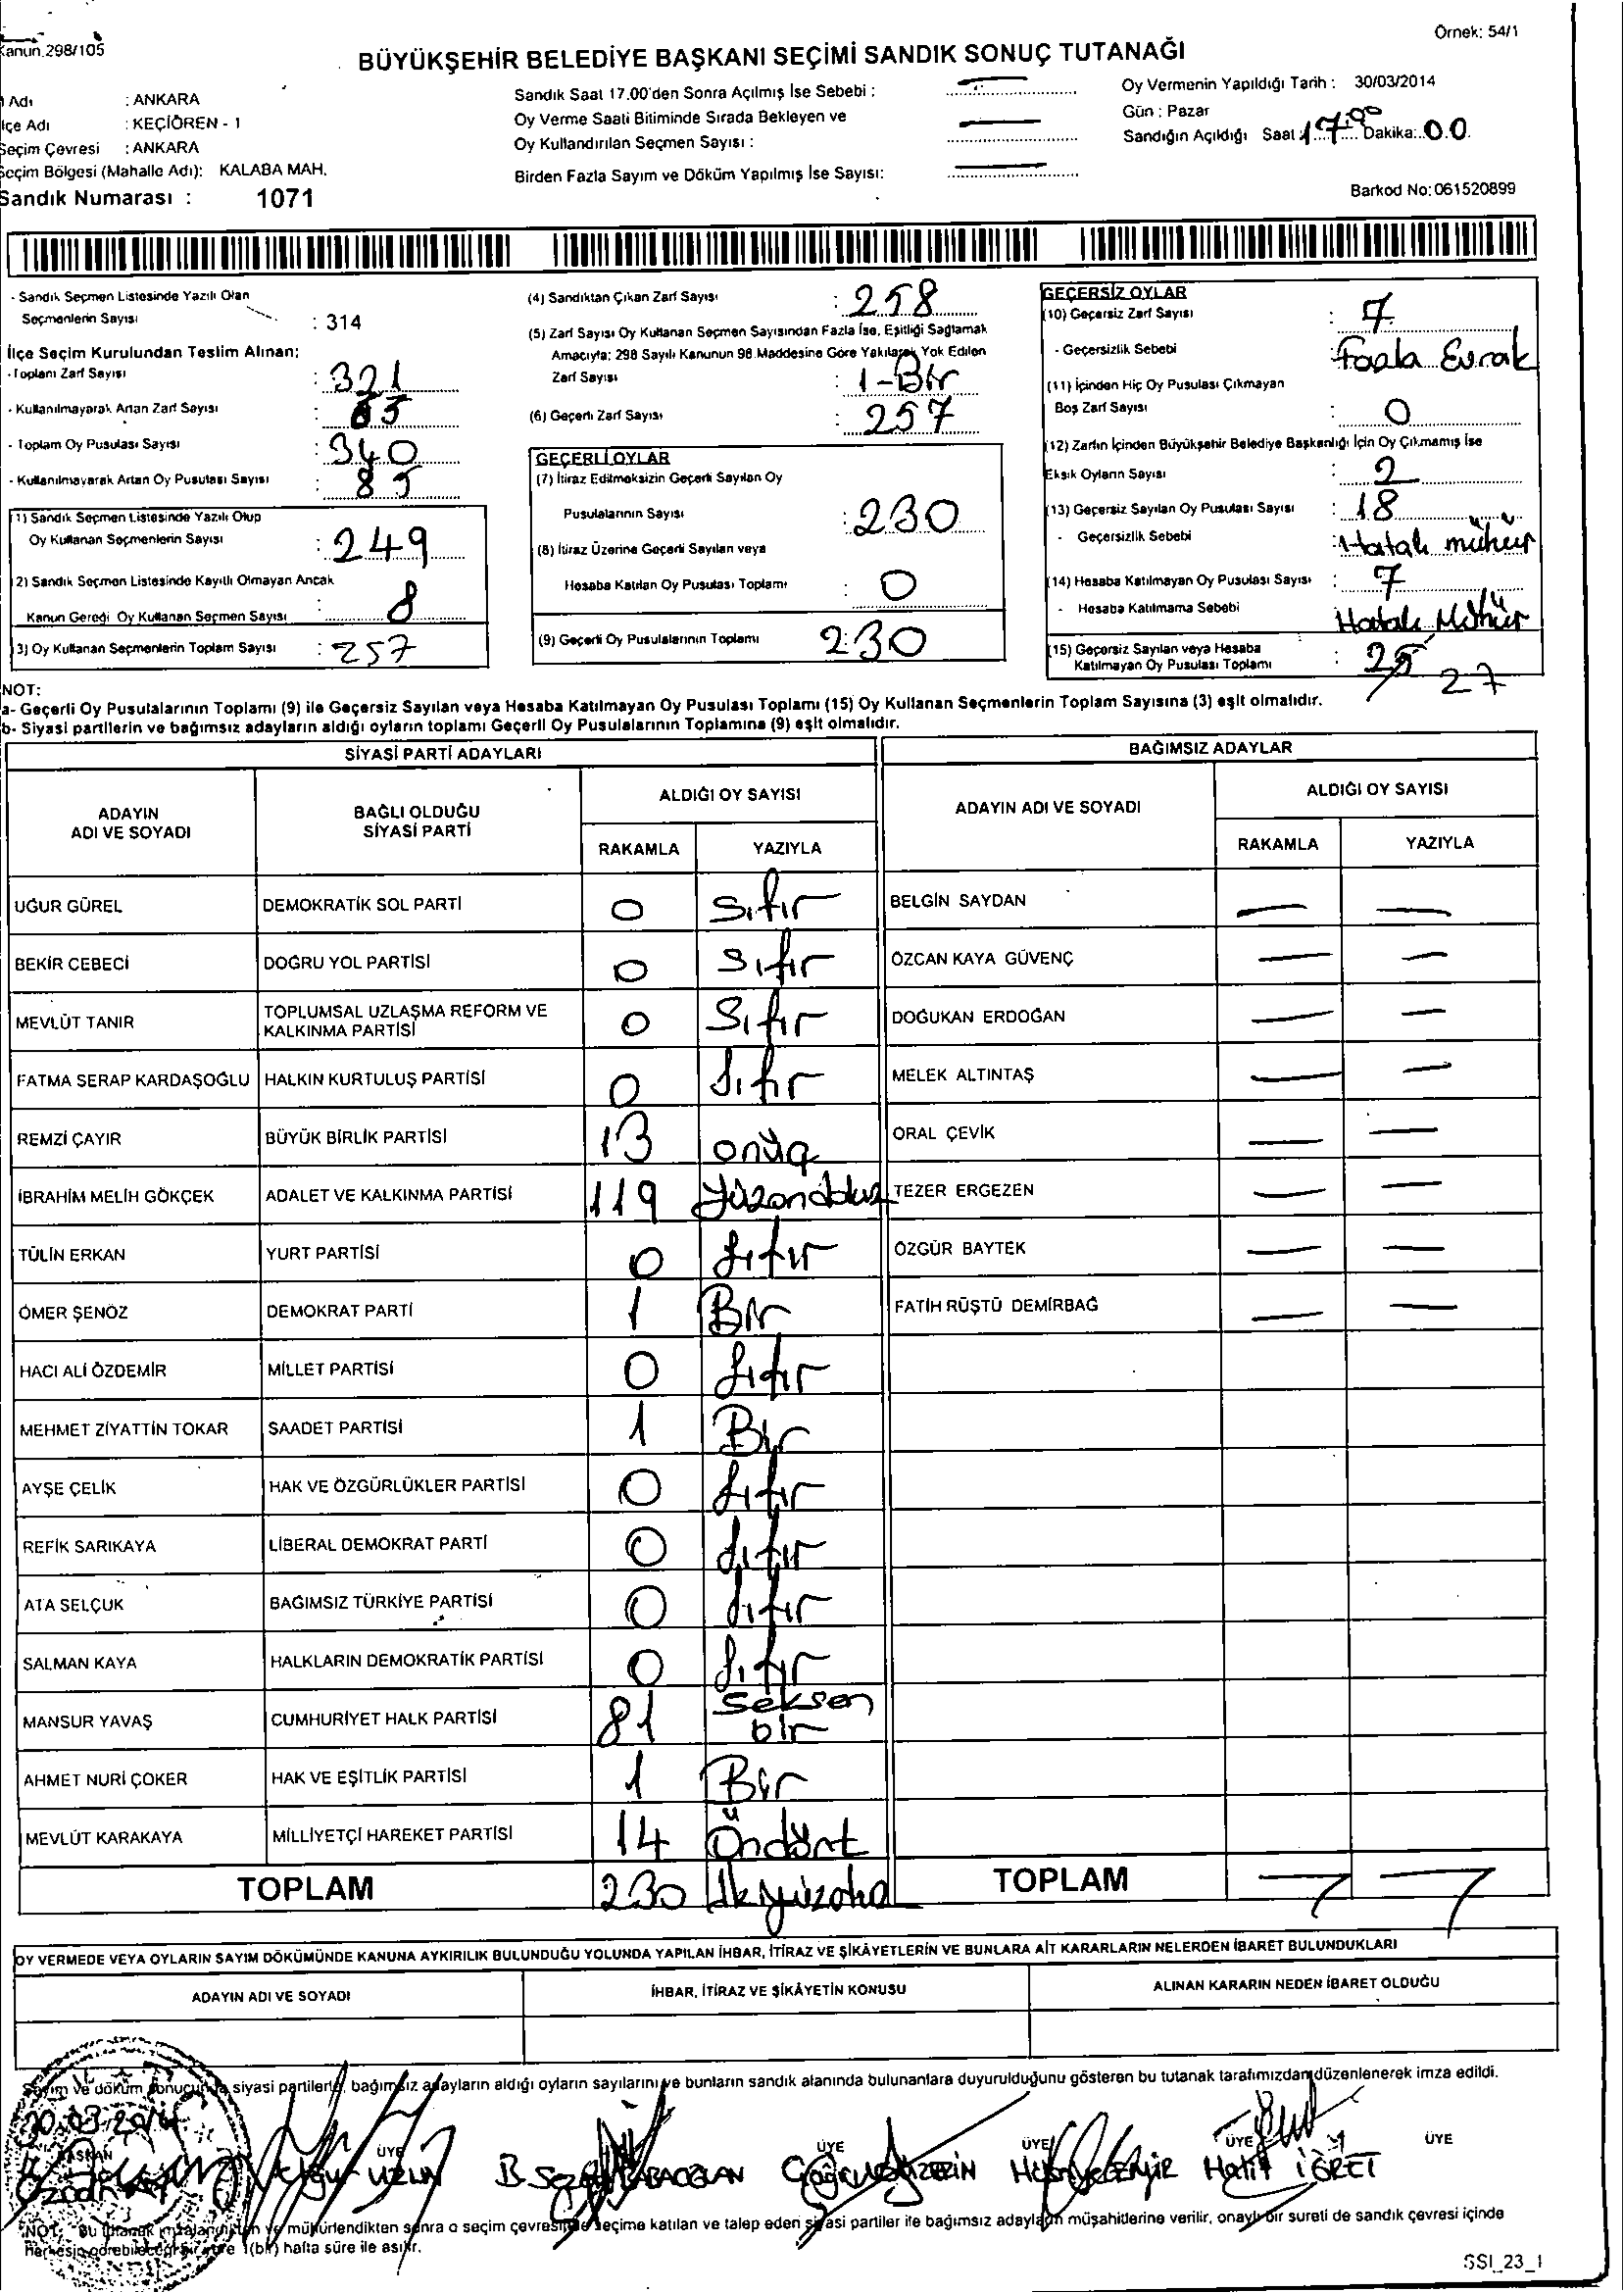 Kanun 298/105
Örnek: 54/1
BÜYÜKŞEHİR BELEDİYE BAŞKANI SEÇİMİ SANDIK SONUÇ TUTANAĞI
Adı : ANKARA
İlçe Adı : KEÇİÖREN - 1
Seçim Çevresi : ANKARA
Seçim Bölgesi (Mahalle Adı): KALABA MAH.
Sandık Numarası : 1071
Sandık Saat 17.00'den Sonra Açılmış İse Sebebi :
Oy Verme Saati Bitiminde Sırada Bekleyen ve
Oy Kullandırılan Seçmen Sayısı :
Birden Fazla Sayım ve Döküm Yapılmış İse Sayısı:
Oy Vermenin Yapıldığı Tarih : 30/03/2014
Gün : Pazar
Sandığın Açıldığı Saat : 17.00 Dakika: 00
Barkod No: 061520899
- Sandık Seçmen Listesinde Yazılı Olan
Seçmenlerin Sayısı : 314
İlçe Seçim Kurulundan Teslim Alınan;
- Toplam Zarf Sayısı : 321
- Kullanılmayarak Artan Zarf Sayısı : 63
- Toplam Oy Pusulası Sayısı : 340
- Kullanılmayarak Artan Oy Pusulası Sayısı : 85
(1) Sandık Seçmen Listesinde Yazılı Olup
Oy Kullanan Seçmenlerin Sayısı : 249
(2) Sandık Seçmen Listesinde Kayıtlı Olmayan Ancak
Kanun Gereği Oy Kullanan Seçmen Sayısı : 8
(3) Oy Kullanan Seçmenlerin Toplam Sayısı : 257
(4) Sandıktan Çıkan Zarf Sayısı : 258
(5) Zarf Sayısı Oy Kullanan Seçmen Sayısından Fazla İse, Eşitliği Sağlamak
Amacıyla; 298 Sayılı Kanunun 98.Maddesine Göre Yakılarak Yok Edilen
Zarf Sayısı : 1-Bir
(6) Geçerli Zarf Sayısı : 257
GEÇERLİ OYLAR
(7) İtiraz Edilmeksizin Geçerli Sayılan Oy
Pusulalarının Sayısı : 230
(8) İtiraz Üzerine Geçerli Sayılan veya
Hesaba Katılan Oy Pusulası Toplamı : 0
(9) Geçerli Oy Pusulalarının Toplamı : 230
GEÇERSİZ OYLAR
(10) Geçersiz Zarf Sayısı : 7
- Geçersizlik Sebebi : Fazla Evrak
(11) İçinden Hiç Oy Pusulası Çıkmayan
Boş Zarf Sayısı : 0
(12) Zarfın İçinden Büyükşehir Belediye Başkanlığı İçin Oy Çıkmamış İse
Eksik Oyların Sayısı : 2
(13) Geçersiz Sayılan Oy Pusulası Sayısı : 18
- Geçersizlik Sebebi : Hatalı mühür
(14) Hesaba Katılmayan Oy Pusulası Sayısı : 7
- Hesaba Katılmama Sebebi Hatalı Mühür
(15) Geçersiz Sayılan veya Hesaba
Katılmayan Oy Pusulası Toplamı : 25 27
NOT:
a- Geçerli Oy Pusulalarının Toplamı (9) ile Geçersiz Sayılan veya Hesaba Katılmayan Oy Pusulası Toplamı (15) Oy Kullanan Seçmenlerin Toplam Sayısına (3) eşit olmalıdır.
b- Siyasi partilerin ve bağımsız adayların aldığı oyların toplamı Geçerli Oy Pusulalarının Toplamına (9) eşit olmalıdır.
SİYASİ PARTİ ADAYLARI
ADAYIN ADI VE SOYADI
BAĞLI OLDUĞU SİYASİ PARTİ
ALDIĞI OY SAYISI
RAKAMLA YAZIYLA
UĞUR GÜREL DEMOKRATİK SOL PARTİ 0 Sıfır
BEKİR CEBECİ DOĞRU YOL PARTİSİ 0 Sıfır
MEVLÜT TANIR TOPLUMSAL UZLAŞMA REFORM VE KALKINMA PARTİSİ 0 Sıfır
FATMA SERAP KARDAŞOĞLU HALKIN KURTULUŞ PARTİSİ 0 Sıfır
REMZİ ÇAYIR BÜYÜK BİRLİK PARTİSİ 13 onüç
İBRAHİM MELİH GÖKÇEK ADALET VE KALKINMA PARTİSİ 119 Yüzondokuz
TÜLİN ERKAN YURT PARTİSİ 0 Sıfır
ÖMER ŞENÖZ DEMOKRAT PARTİ 1 Bir
HACI ALİ ÖZDEMİR MİLLET PARTİSİ 0 Sıfır
MEHMET ZİYATTİN TOKAR SAADET PARTİSİ 1 Bir
AYŞE ÇELİK HAK VE ÖZGÜRLÜKLER PARTİSİ 0 Sıfır
REFİK SARIKAYA LİBERAL DEMOKRAT PARTİ 0 Sıfır
ATA SELÇUK BAĞIMSIZ TÜRKİYE PARTİSİ 0 Sıfır
SALMAN KAYA HALKLARIN DEMOKRATİK PARTİSİ 0 Sıfır
MANSUR YAVAŞ CUMHURİYET HALK PARTİSİ 81 Seksen bir
AHMET NURİ ÇOKER HAK VE EŞİTLİK PARTİSİ 1 Bir
MEVLÜT KARAKAYA MİLLİYETÇİ HAREKET PARTİSİ 14 Öndört
TOPLAM 230
BAĞIMSIZ ADAYLAR
ADAYIN ADI VE SOYADI
ALDIĞI OY SAYISI
RAKAMLA YAZIYLA
BELGİN SAYDAN
ÖZCAN KAYA GÜVENÇ
DOĞUKAN ERDOĞAN
MELEK ALTINTAŞ
ORAL ÇEVİK
TEZER ERGEZEN
ÖZGÜR BAYTEK
FATİH RÜŞTÜ DEMİRBAĞ
TOPLAM
OY VERMEDE VEYA OYLARIN SAYIM DÖKÜMÜNDE KANUNA AYKIRILIK BULUNDUĞU YOLUNDA YAPILAN İHBAR, İTİRAZ VE ŞİKÂYETLERİN VE BUNLARA AİT KARARLARIN NELERDEN İBARET BULUNDUKLARI
ADAYIN ADI VE SOYADI
İHBAR, İTİRAZ VE ŞİKÂYETİN KONUSU
ALINAN KARARIN NEDEN İBARET OLDUĞU
Sayım ve döküm sonucunda siyasi partilerle, bağımsız adayların aldığı oyların sayılarını ve bunların sandık alanında bulunanlara duyurulduğunu gösteren bu tutanak tarafımızdan düzenlenerek imza edildi.
30.03.2014
BAŞKAN ÜYE ÜYE ÜYE ÜYE ÜYE
UZUN Halit İĞRET
NOT: Bu tutanak imzalandıktan ve mühürlendikten sonra o seçim çevresinde seçime katılan ve talep eden siyasi partiler ile bağımsız adayların müşahitlerine verilir, onaylı bir sureti de sandık çevresi içinde
herkesin görebileceği bir yere 1(bir) hafta süre ile asılır.
SSI_23_1